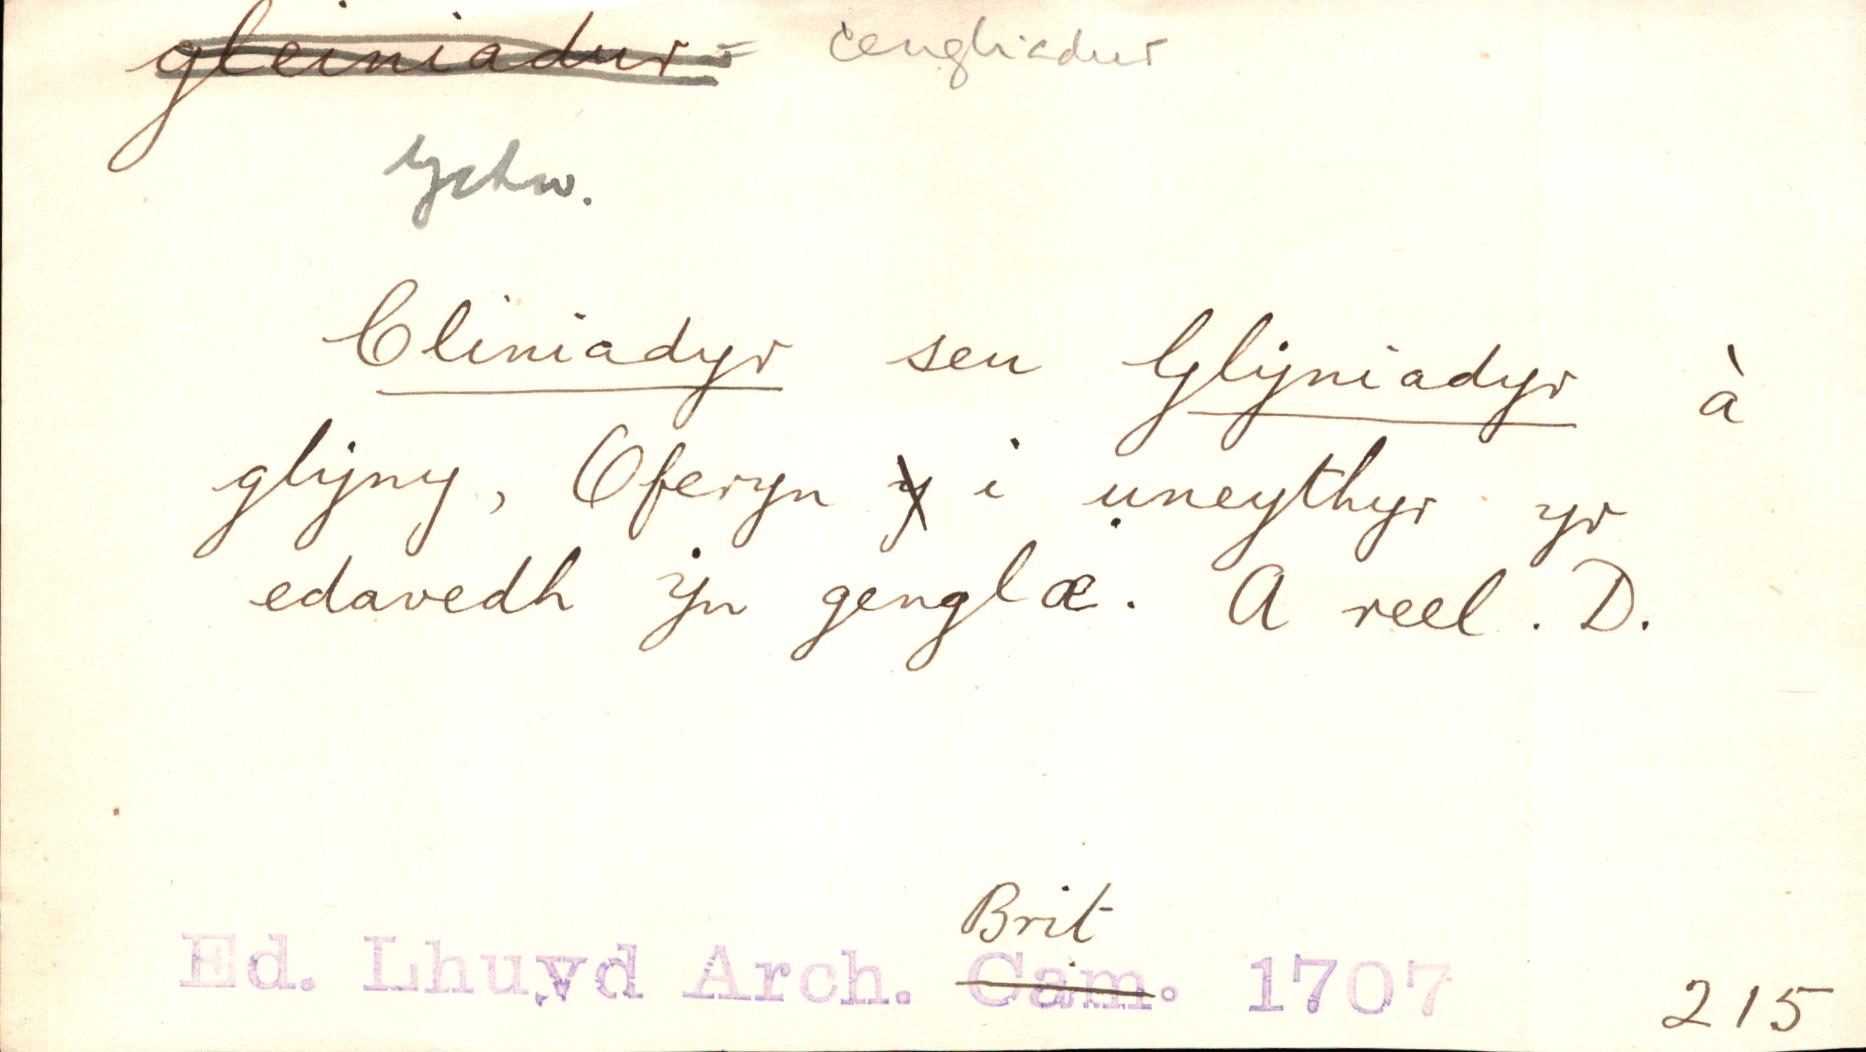 gleiniadur = cengliadur
Cliniadyr seu Glijniadyr à
glijny, Oferyn y i ụneythyr yr
edavedh yn genglæ. A reel. D.
Brit
Ed. Lhuyd Arch. Cam. 1707
215